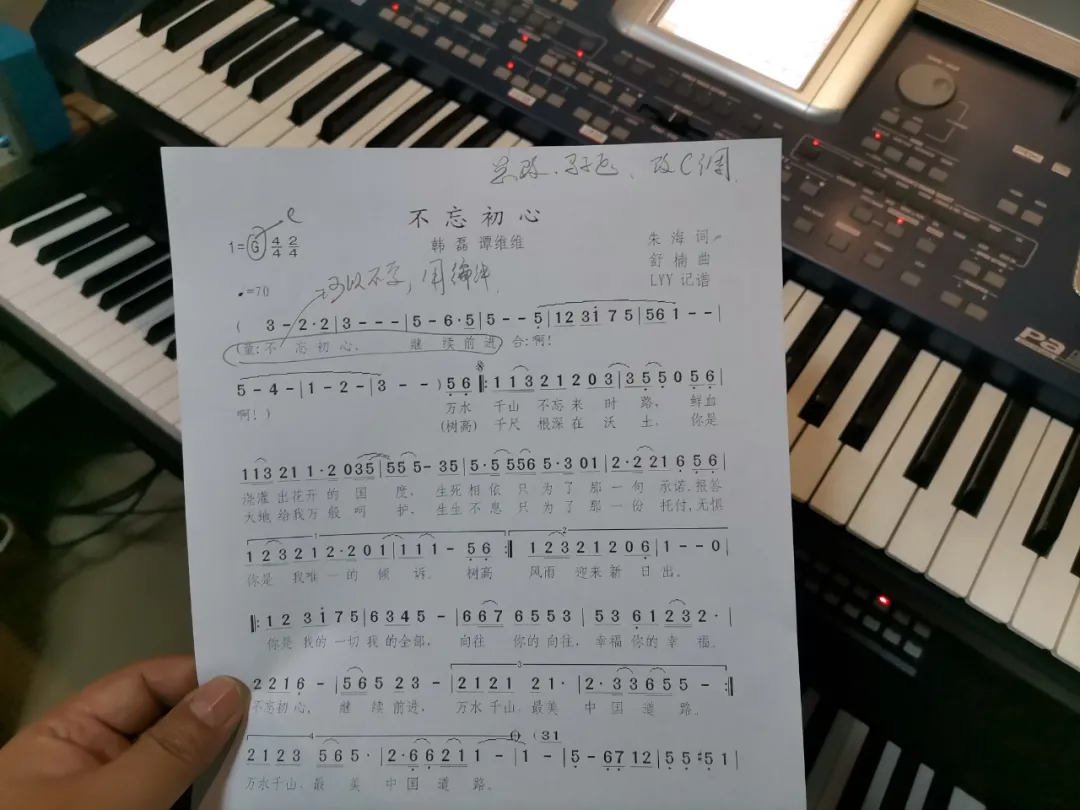 改C调
不忘初心
C
1=G 4/4 2/4
韩磊 谭维维
朱海 词
舒楠 曲
LYY 记谱
=70
可以不要，用
( 3 - 2 · 2 | 3 - - - | 5 - 6 · 5 | 5 - - 5 | 1 2 3 1 7 5 | 5 6 1 - - |
(童:不 忘 初 心， 继 续 前进 合:啊!
5 - 4 - | 1 - 2 - | 3 - - ) 5 6 ‖: 1 1 3 2 1 2 0 3 | 3 5 5 0 5 6 |
啊!) 万水 千山 不忘来 时 路， 鲜血
(树高) 千尺 根深在 沃 土， 你是
1 1 3 2 1 1 · 2 0 3 5 | 5 5 5 - 3 5 | 5 · 5 5 5 6 5 · 3 0 1 | 2 · 2 2 1 6 5 6 |
浇灌 出花开 的 国 度， 生死 相 依 只 为 了 那 一 句 承诺，报答
大地 给我万 般 呵 护， 生生 不 息 只 为 了 那 一 份 托付，无惧
1 2 3 2 1 2 · 2 0 1 | 1 1 1 - 5 6 :‖ 1 2 3 2 1 2 0 6 | 1 - - 0 |
你是 我唯 一 的 倾 诉。 树高 风雨 迎来 新 日 出。
‖: 1 2 3 1 7 5 | 6 3 4 5 - | 6 6 7 6 5 5 3 | 5 3 6 1 2 3 2 · |
你是 我的 一切 我 的全部， 向往 你的 向往，幸福 你的 幸 福。
2 2 1 6 - | 5 6 5 2 3 - | 2 1 2 1 2 1 · | 2 · 3 3 6 5 5 - :‖
不忘初心， 继 续 前进， 万水 千山，最美 中 国 道 路。
(3 1
2 1 2 3 5 6 5 · | 2 · 6 6 2 1 1 - | 1 - | 5 - 6 7 1 2 | 5 5 #5 5 1 |
万水千山，最 美 中 国 道 路。
Pa